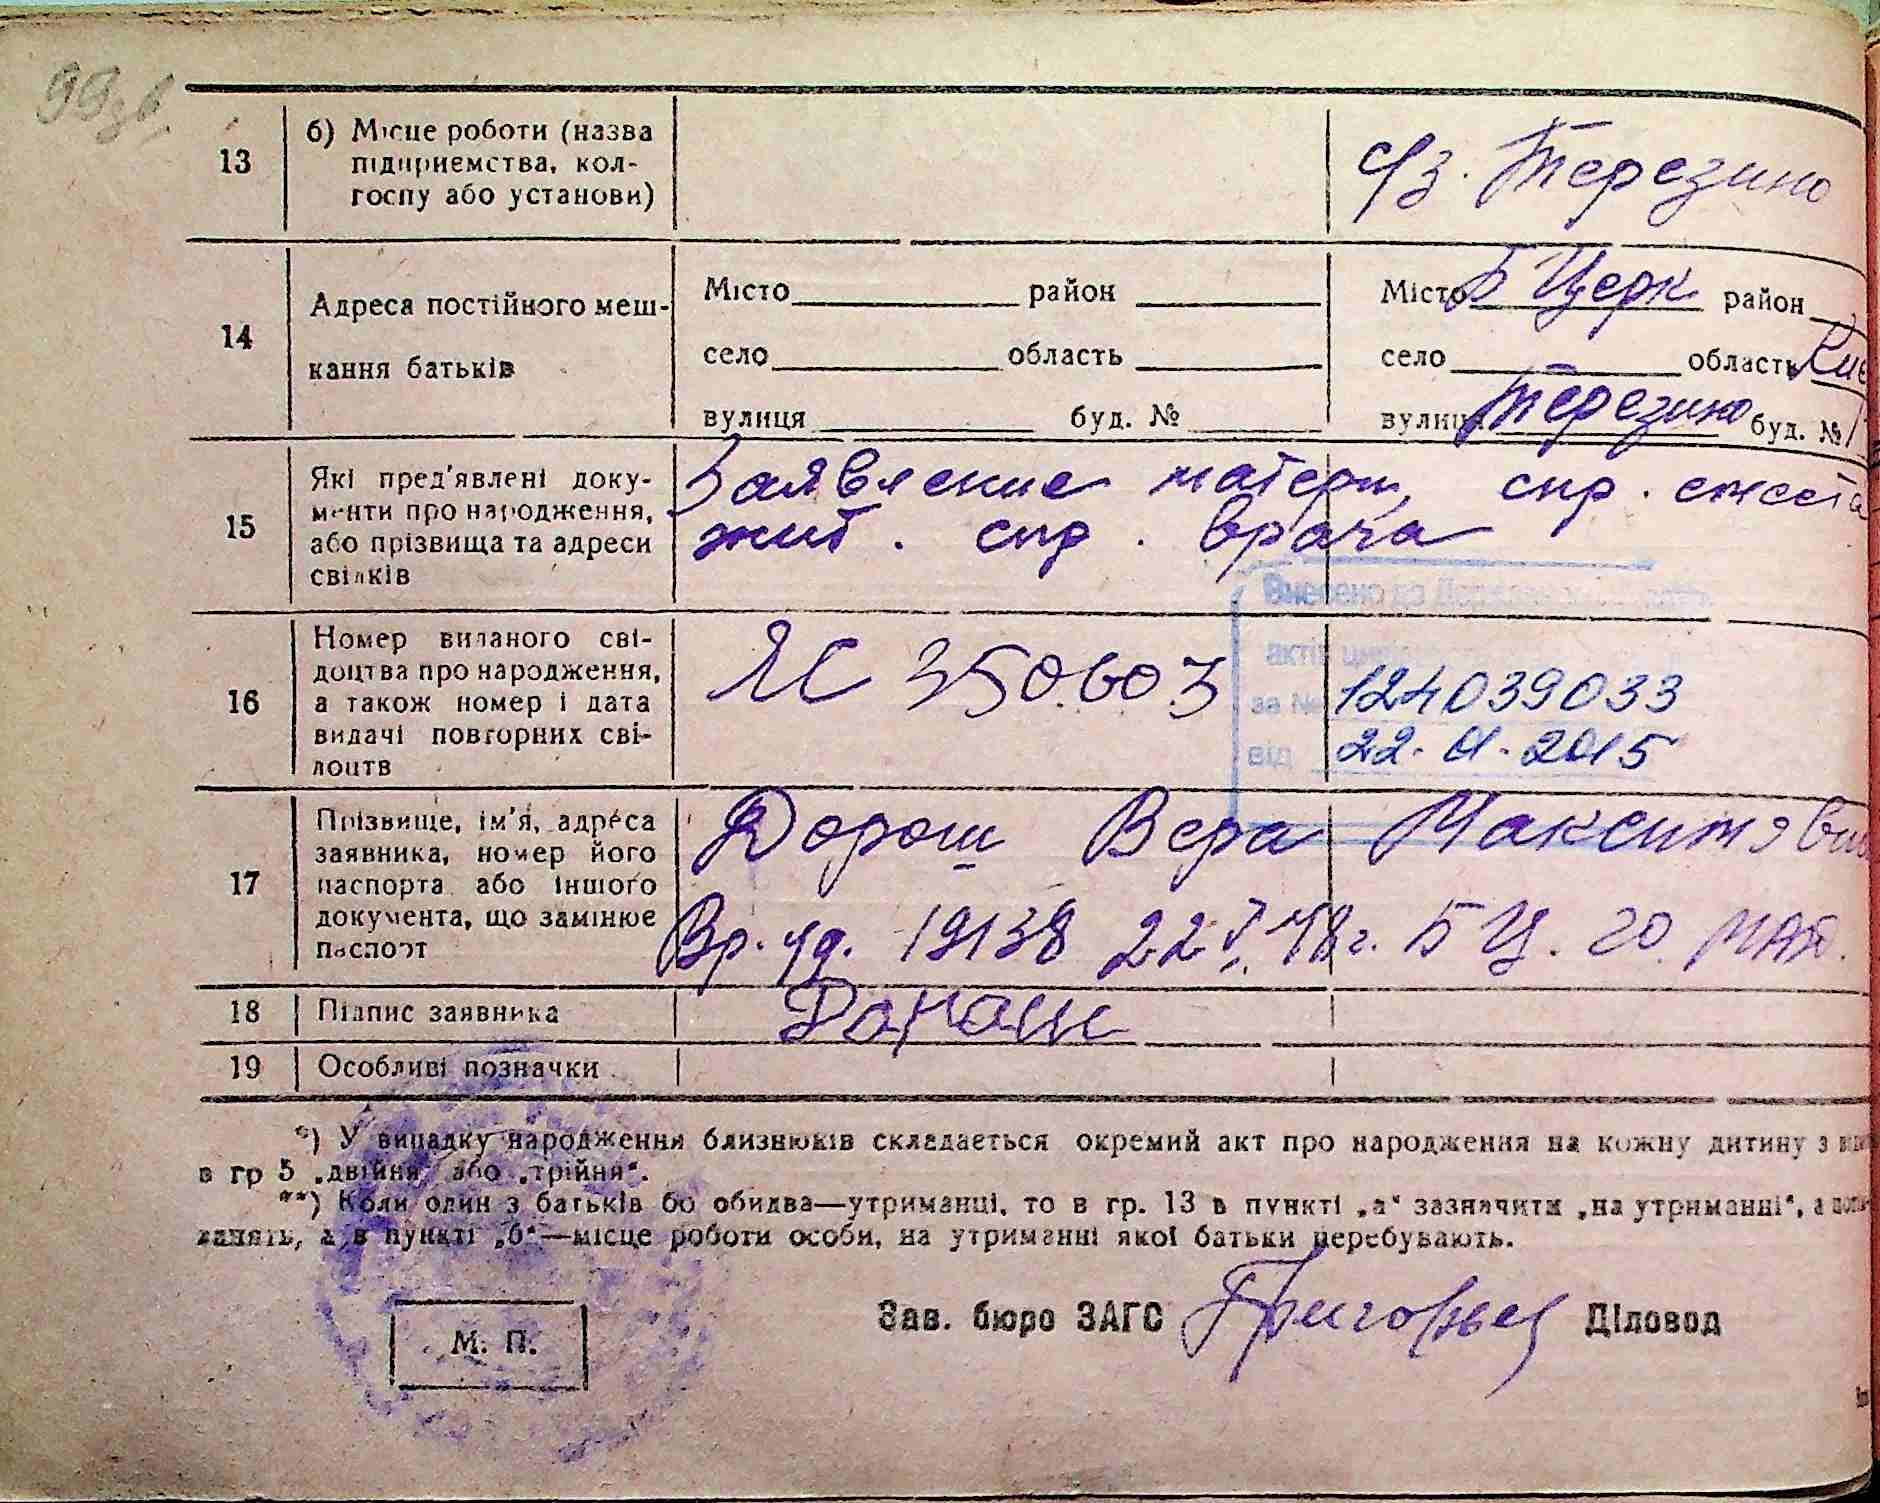 99зв.
13
б) Місце роботи (назва
підприємства, кол-
госпу або установи)
с/з. Терезино
14
Адреса постійного меш-
кання батьків
Місто район
село область
вулиця буд. №
Місто Б Церк район
село область Кие
вулиця Терезино буд. №
15
Які пред'явлені доку-
менти про народження,
або прізвища та адреси
свідків
Заявление матери, спр. с места
жит. спр. врача
Внесено до
актів
за № 124039033
від 22.01.2015
16
Номер виданого сві-
доцтва про народження,
а також номер і дата
видачі повторних сві-
доцтв
ЯС 350603
17
Прізвище, ім'я, адреса
заявника, номер його
паспорта або іншого
документа, що замінює
паспорт
Дорош Вера Максимовн
Вр. уд. 19138 22 V. 48 г. Б Ц. го
18
Підпис заявника
Дорош
19
Особливі позначки
*) У випадку народження близнюків складається окремий акт про народження на кожну дитину з
в гр 5 „двійня" або „трійня".
**) Коли один з батьків бо обидва—утриманці, то в гр. 13 в пункті „а" зазначити „на утриманні", а
а в пункті „б"—місце роботи особи, на утриманні якої батьки перебувають.
Зав. бюро ЗАГС Діловод
М. П.